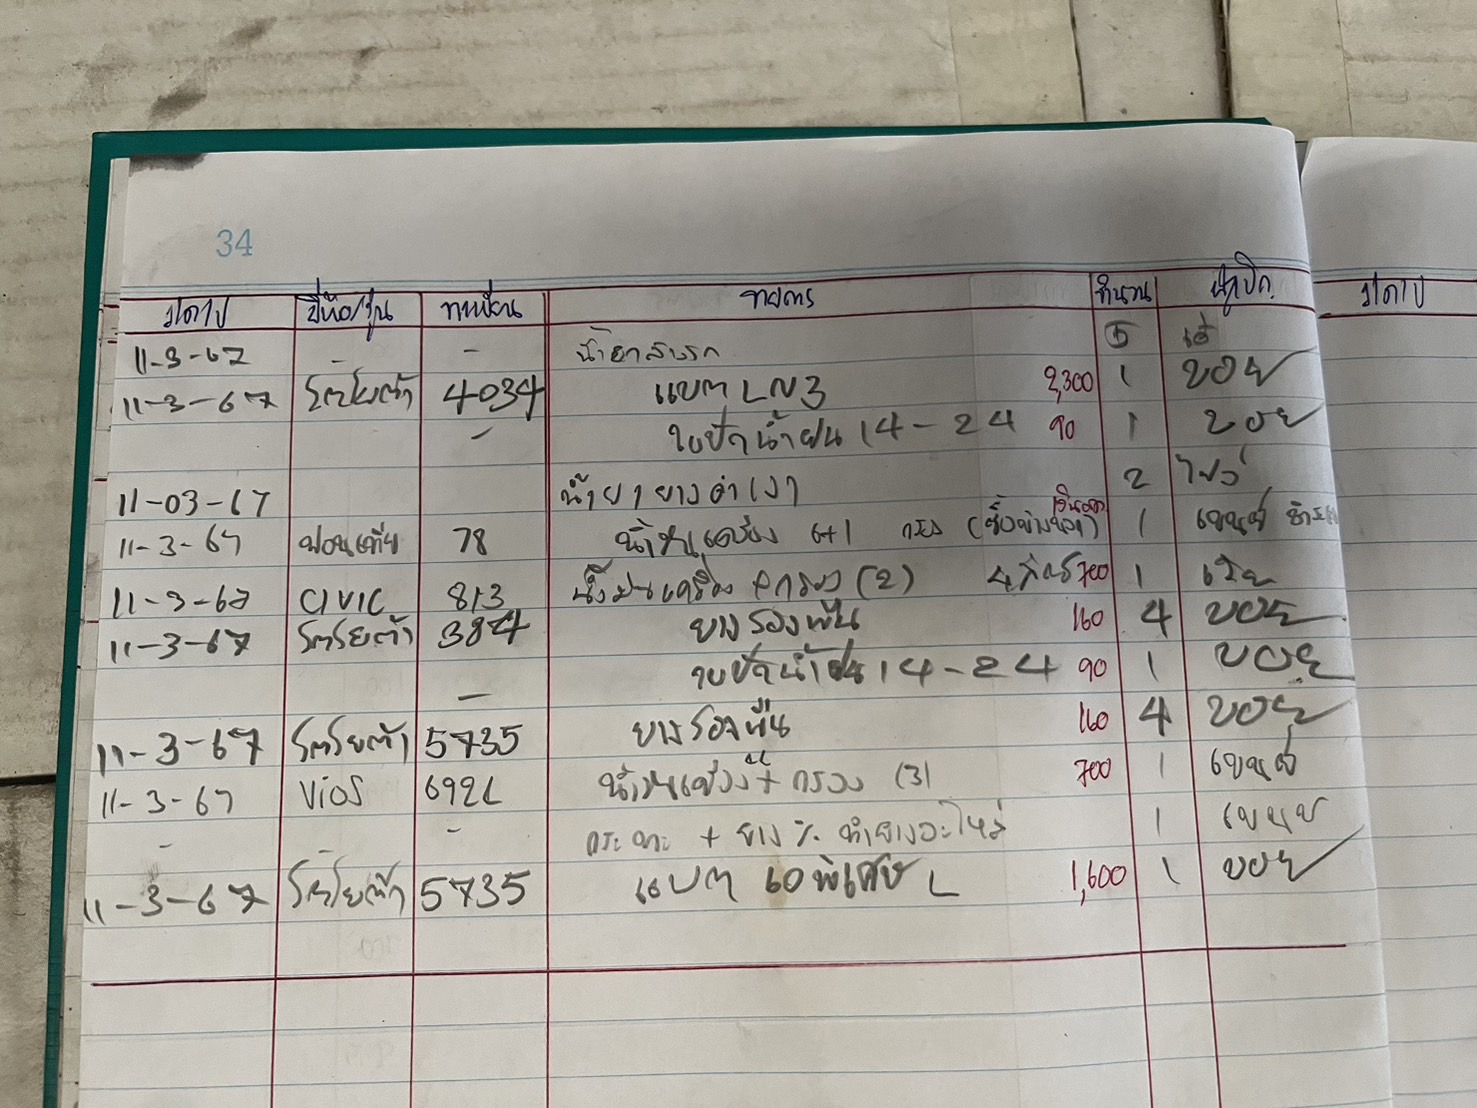 34
ว/ด/ป ยี่ห้อ/รุ่น ทะเบียน รายการ จำนวน ผู้เบิก ว/ด/ป
11-3-67 - - น้ำยาล้างรถ 5
11-3-67 โตโยต้า 4034 แบต LN3 2,300 1 บอย
- ใบปัดน้ำฝน 14-24 90 1 บอย
11-03-67 น้ำยายางดำเงา 2
11-3-67 78 น้ำมันเครื่อง 6+1 กรอง 1
11-3-67 CIVIC 813 น้ำมันเครื่อง + กรอง (2) 4 ลิตร 700 1
11-3-67 โตโยต้า 3874 ยางรองพื้น 160 4 บอย
- ใบปัดน้ำฝน 14-24 90 1 บอย
11-3-67 โตโยต้า 5735 ยางรองพื้น 160 4 บอย
11-3-67 VIOS 692L น้ำมันเครื่อง + กรอง (3) 700 1
- - - + ยาง 1
11-3-67 โตโยต้า 5735 แบต 60 พิเศษ L 1,600 1 บอย